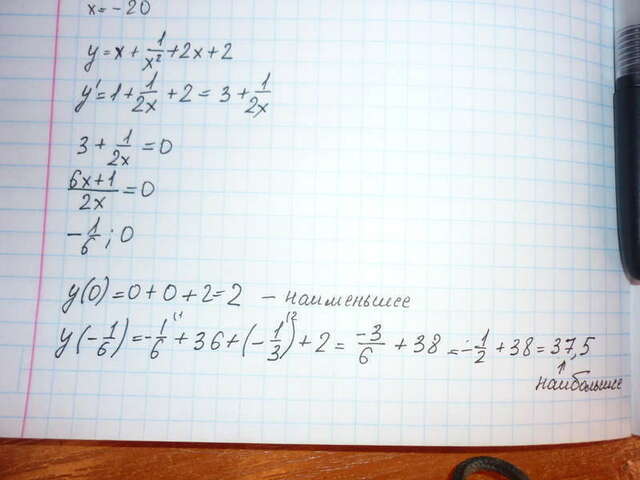 x = -20
y = x + 1/x² + 2x + 2
y' = 1 + 1/2x + 2 = 3 + 1/2x
3 + 1/2x = 0
6x+1/2x = 0
-1/6 ; 0
y(0) = 0 + 0 + 2 = 2 – наименьшее
y(-1/6) = -1/6 (1 + 36 + (-1/3) (2 + 2 = -3/6 + 38 = -1/2 + 38 = 37,5
↑
наибольшее